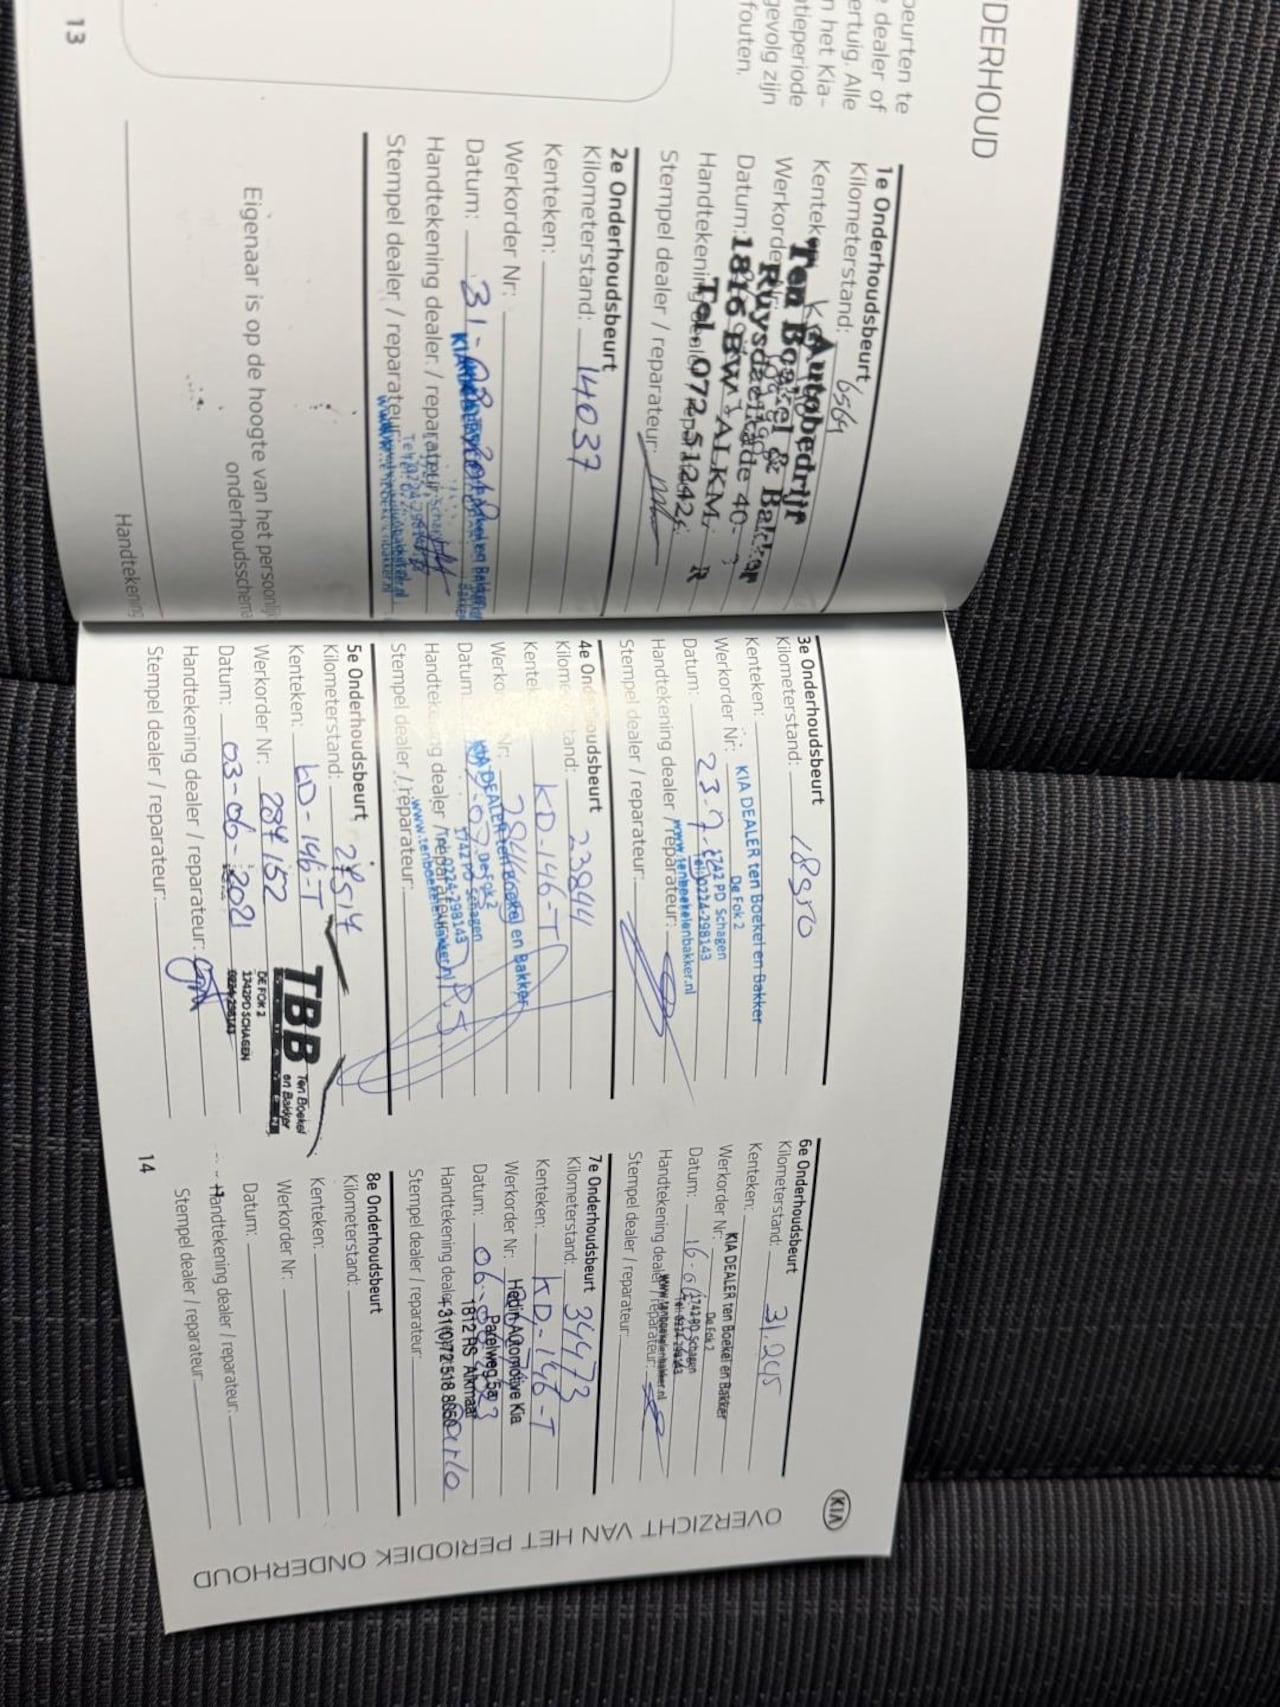 DERHOUD
beurten te
dealer of
ertuig. Alle
n het Kia-
tieperiode
gevolg zijn
fouten.
13
1e Onderhoudsbeurt
Kilometerstand: 6564
Kenteken:
Werkorder
Datum:
Handtekening
Stempel dealer / reparateur:
Autobedrijf
Ten Boekel & Bakker
Ruysdaelkade 40-
1816 BW ALKM
Tel. 072 51242
2e Onderhoudsbeurt
Kilometerstand: 14037
Kenteken:
Werkorder Nr:
Datum: 31-08-2018
Handtekening dealer / reparateur:
Stempel dealer / reparateur:
Eigenaar is op de hoogte van het persoonlijk
onderhoudsschema
Handtekening
3e Onderhoudsbeurt
Kilometerstand:
Kenteken:
Werkorder Nr:
Datum: 23.7.
Handtekening dealer / reparateur:
Stempel dealer / reparateur:
KIA DEALER ten Boekel en Bakker
De Fok 2
1742 PD Schagen
Tel. 0224-298143
www.tenboekelenbakker.nl
4e Onderhoudsbeurt
Kilometerstand: 23844
Kenteken: KD-146-T
Werkorder Nr:
Datum:
Handtekening dealer / reparateur:
Stempel dealer / reparateur:
KIA DEALER ten Boekel en Bakker
De Fok 2
1742 PD Schagen
Tel. 0224-298143
www.tenboekelenbakker.nl
5e Onderhoudsbeurt
Kilometerstand: 27517
Kenteken: KD-146-T
Werkorder Nr: 284152
Datum: 03-06-2021
Handtekening dealer / reparateur:
Stempel dealer / reparateur:
TBB Ten Boekel
en Bakker
DE FOK 2
1742PD SCHAGEN
0224-298143
14
6e Onderhoudsbeurt
Kilometerstand: 31.245
Kenteken:
Werkorder Nr:
Datum: 16-06
Handtekening dealer / reparateur:
Stempel dealer / reparateur:
KIA DEALER ten Boekel en Bakker
De Fok 2
1742 PD Schagen
Tel. 0224-298143
www.tenboekelenbakker.nl
7e Onderhoudsbeurt
Kilometerstand: 34473
Kenteken: KD-146-T
Werkorder Nr:
Datum: 06-
Handtekening dealer
Stempel dealer / reparateur:
Hedin Automotive Kia
Parelweg 5a
1812 RS Alkmaar
+31(0)72 518 8050
8e Onderhoudsbeurt
Kilometerstand:
Kenteken:
Werkorder Nr:
Datum:
Handtekening dealer / reparateur:
Stempel dealer / reparateur:
KIA
OVERZICHT VAN HET PERIODIEK ONDERHOUD